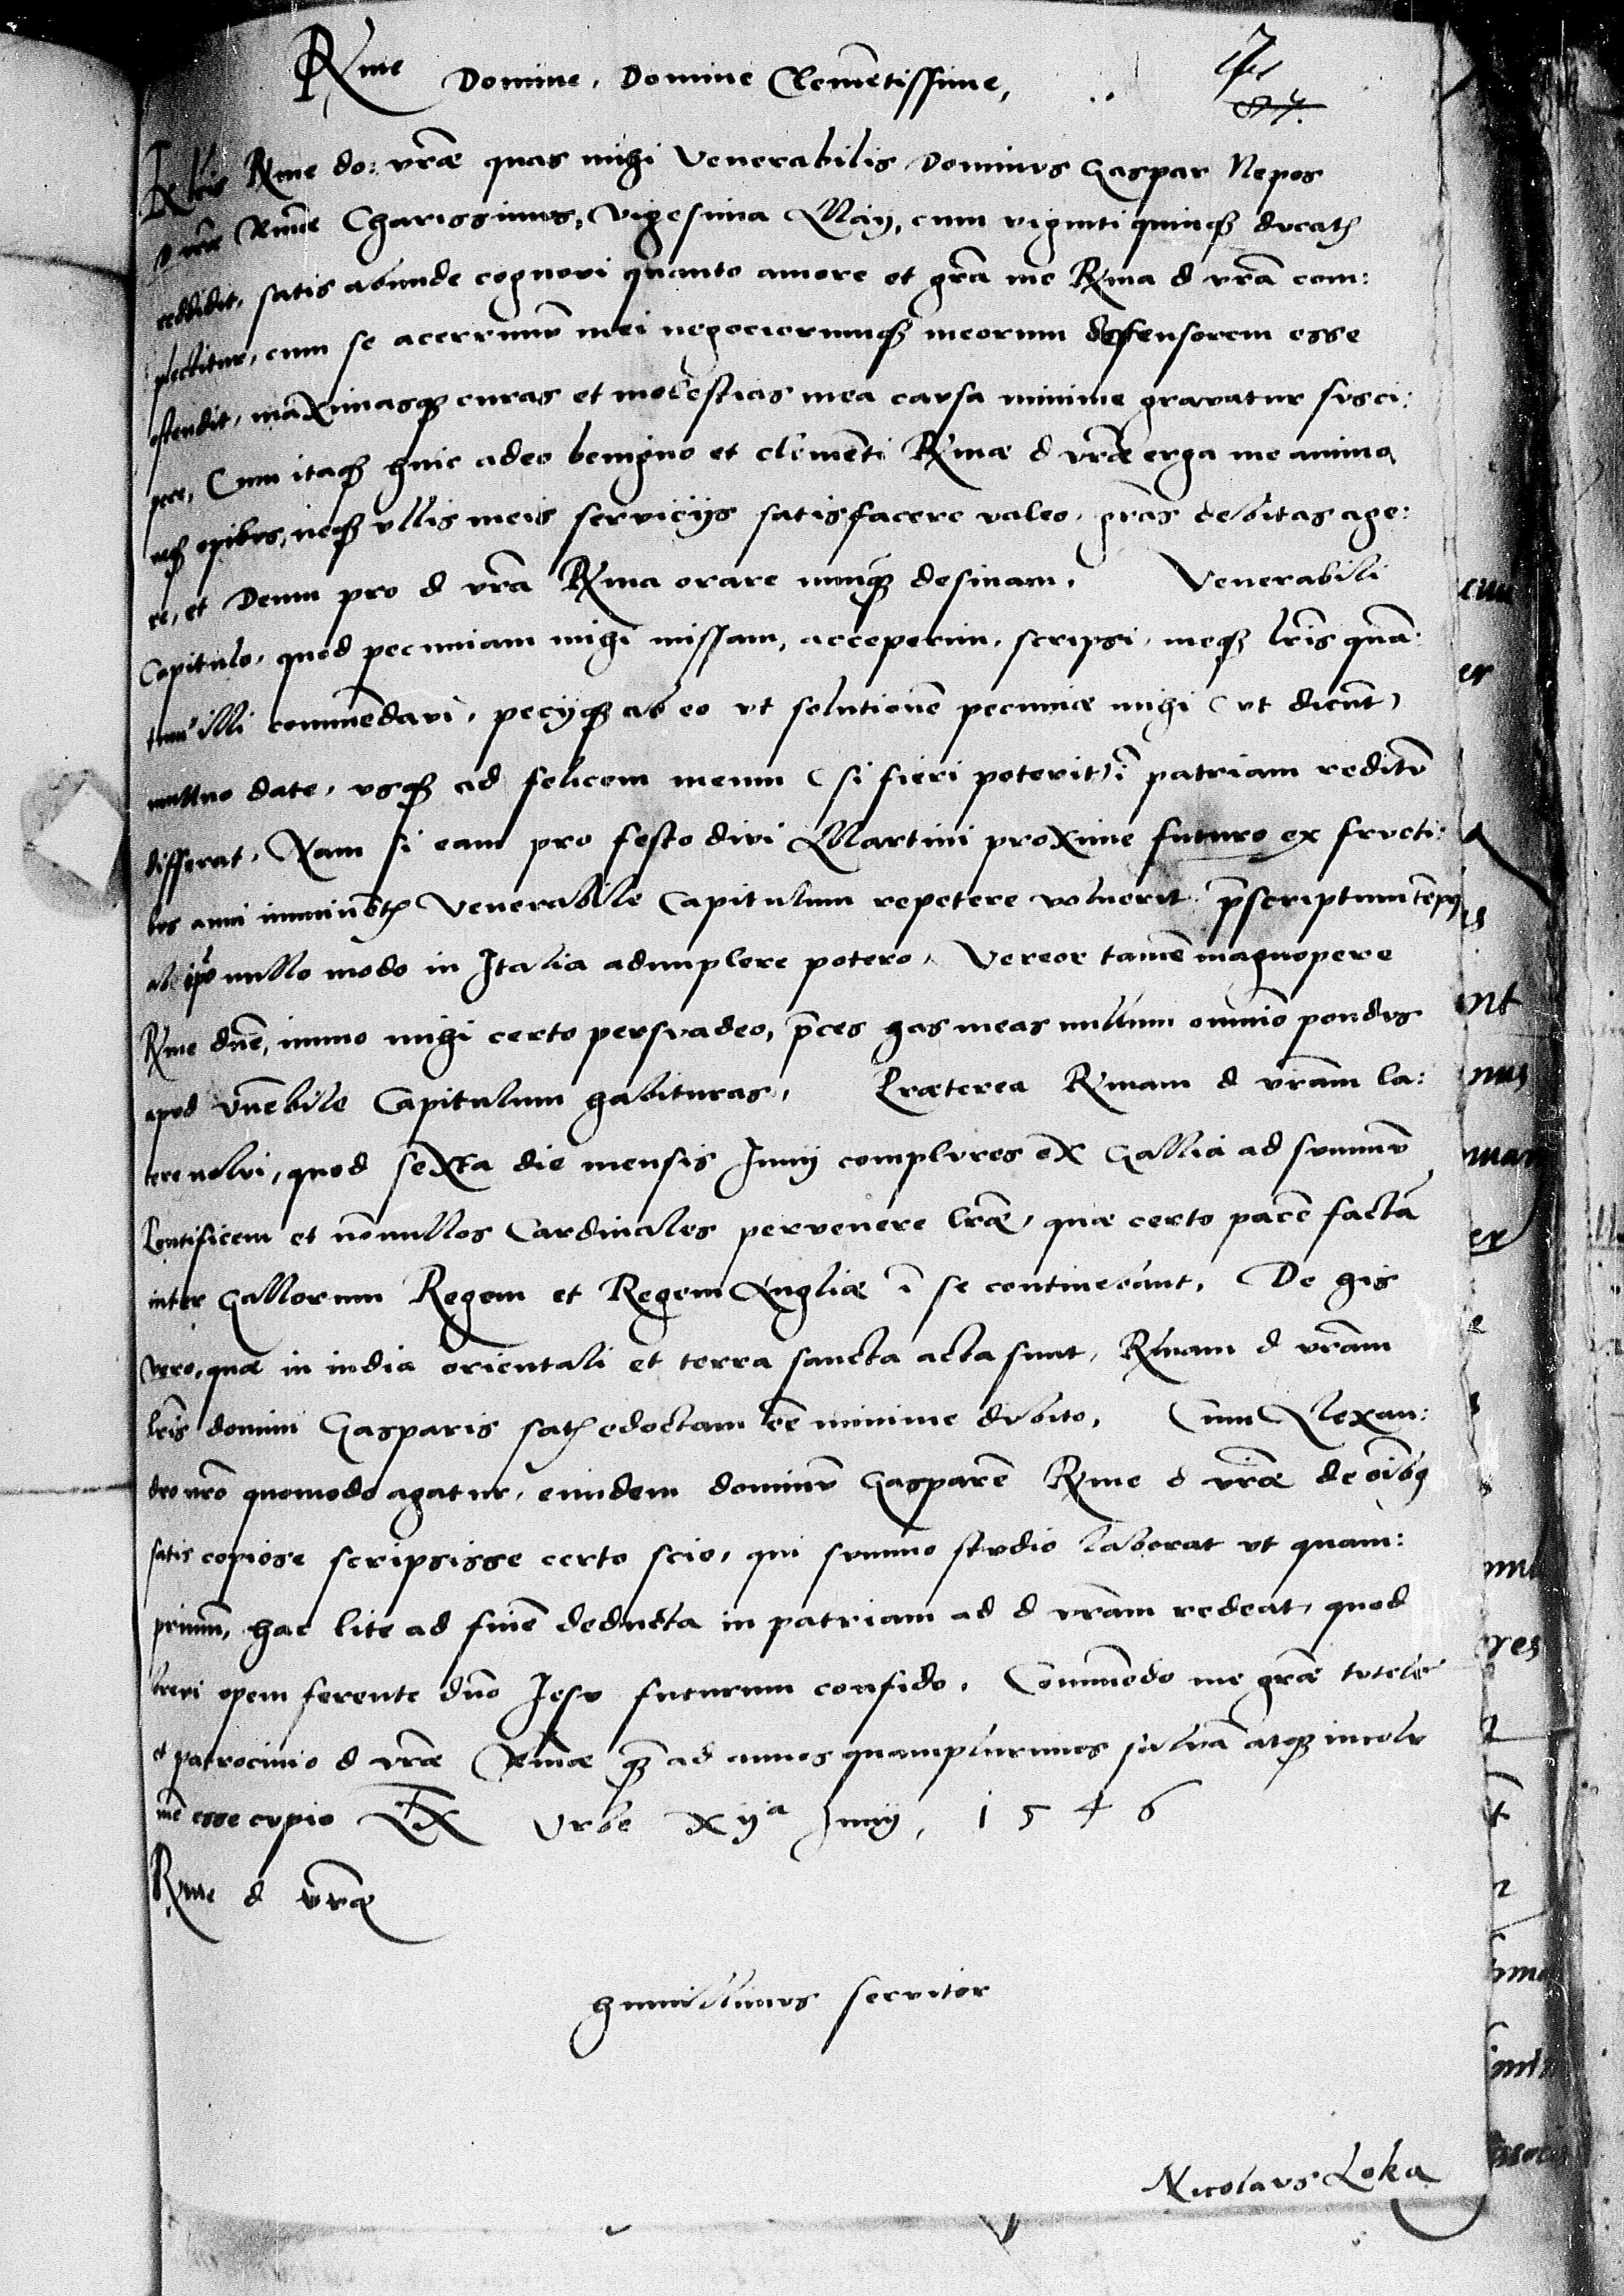 Rme Domine, Domine Clementissime,
Ex lris Rme do: vræ quas mihi Venerabilis Dominus Gaspar Nepos
d vræ Rme Charissimus, Vigesima Maij, cum viginti quinq3 ducatis
reddidit, satis abunde cognovi quanto amore et gra me Rma d vra com:
plectitur, cum se acerrimū mei negociorumq3 meorum deffensorem esse
ostendit, maximasq3 curas et molestias mea causa minime gravatur susci:
pere, Cum itaq3 huic adeo benigno et clementi Rmæ d vræ erga me animo,
neq3 opibus, neq3 ullis meis serviciis satisfacere valeo, gras debitas age:
re, et Deum pro d vra Rma orare nunq3 desinam. Venerabili
Capitulo, quod pecuniam mihi missam, acceperim, scripsi, meq3 lris quan:
tum illi commēdavi, pecijq3 ab eo ut solutionē pecuniæ mihi (ut dicūt)
mutuo date, usq3 ad felicem meum (si fieri poterit) ī patriam reditū
differat, Nam si eam pro festo divi Martini proxime futuro ex fructi:
bus anni imminētis Venerabile Capitulum repetere voluerit p̄scriptum tēpus
ab ipo nullo modo in Italia adimplere potero, Vereor tamē magnopere
Rme dnē, immo mihi certo persuadeo, p̄ces has meas nullum omnīo pondus
apud Vn̄ebile Capitulum habituras, Præterea Rmam d vram la:
tere nolui, quod sexta die mensis Junij complures ex Gallia ad summū
Pontificem et nōnullos Cardinales pervenere lræ, quæ certo pacē factā
inter Gallorum Regem et Regem Angliæ ī se continebant, De his
vero, quæ in india orientali et terra sancta acta sunt, Rmam d vram
lris domini Gasparis satis edoctam eē minime dubito, Cum Alexan:
dro nro quomodo agatur, eundem dominū Gasparē Rme d vræ de oībus
satis copiose scripsisse certo scio, qui summo studio laborat ut quam:
primū, hac lite ad finē deducta in patriam ad d vram redeat, quod
brevi opem ferente dno Jesu futurum confido. Commēdo me græ tutelæ
et patrocinio d vræ Rmæ quā ad annos quamplurimos salvā atq3 incolu
mē esse cupio Ex Urbe xija Junij, 1546
Rme d vræ
humillimus servitor
Nicolaus Loka